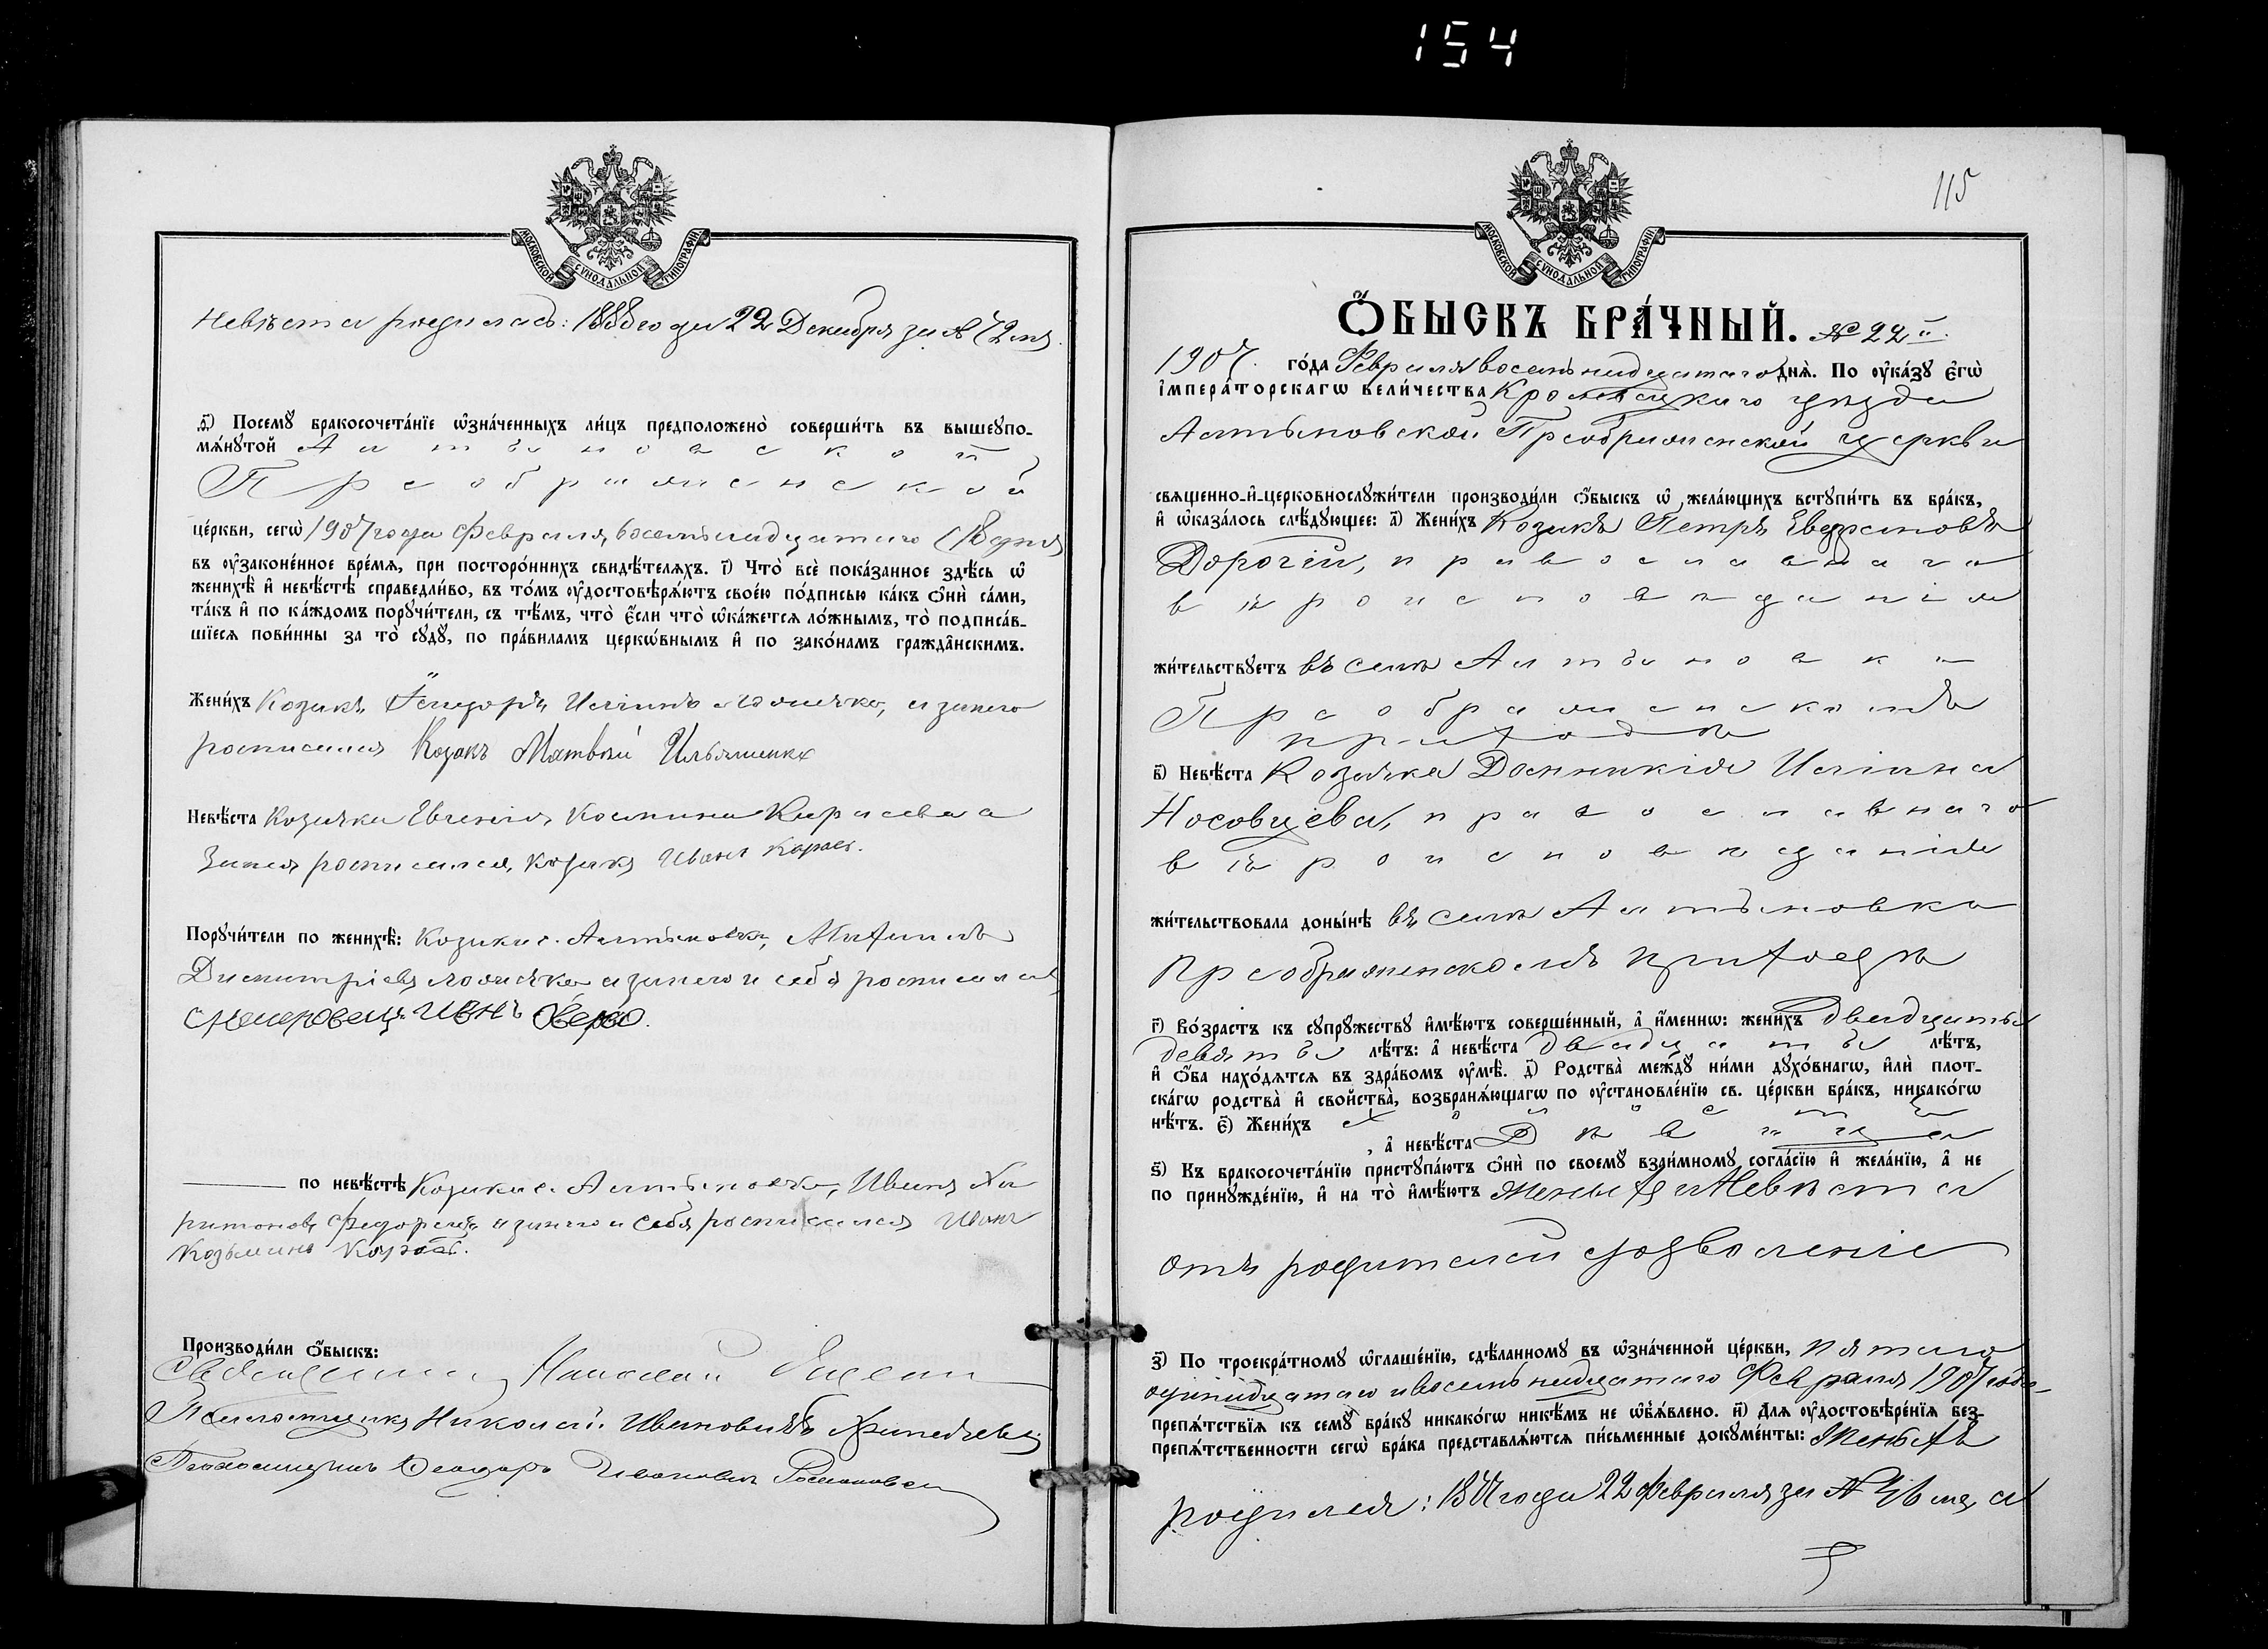 154
МОСКОВСКОЙ СѴНОДАЛЬНОЙ ТИПОГРАФІИ
Невѣста родилась: 1888 года 22 Декабря за № 72 мъ.
ѳ҃) Посемꙋ бракосочета́нїе ѡ҆зна́ченныхъ ли́цъ предположено̀ соверши́ть въ вышеꙋпо-
мѧ́нꙋтой Алтыновской
Преображенской
це́ркви, сегѡ̀ 1907 года Февраля, восемьнадцатаго (18 дня
въ ᲂу҆законе́нное вре́мѧ, при посторо́ннихъ свидѣ́телѧхъ. і҃) Что̀ всѐ пока́занное здѣ́сь ѡ҆
женихѣ̀ и҆ невѣ́стѣ справедли́во, въ то́мъ ᲂу҆достовѣрѧ́ютъ свое́ю по́дписью ка́къ ѻ҆нѝ са́ми,
та́къ и҆ по ка́ждомъ порꙋчи́тели, съ тѣ́мъ, что̀ є҆́сли что̀ ѡ҆ка́жетсѧ ло́жнымъ, то̀ подписа́в-
шїесѧ пови́нны за то̀ сꙋдꙋ̀, по пра́виламъ церкѡ́внымъ и҆ по зако́намъ гражда́нскимъ.
Жени́хъ Козакъ, а за него
росписался Козакъ Матвѣй Ильяшенко
Невѣ́ста Козачка Евгенія Космина Карасева а
За нея росписался, козакъ Иванъ Карась.
Порꙋчи́тели по женихѣ̀: Козаки с. Алтыновки,
Дмитріевъ а за него и себя росписался
Иванъ
по невѣ́стѣ Козаки с. Алтыновки, Иванъ Ха
ритоновъ а за него и себя росписался Иванъ
Козьминъ Карась.
Производи́ли ѻ҆́быскъ:
Священникъ Николай
Псаломщикъ Николай Ивановичъ
Псаломщикъ Ѳеодоръ Ивановичъ
115
МОСКОВСКОЙ СѴНОДАЛЬНОЙ ТИПОГРАФІИ
Ѻ҆́БЫСКЪ БРА́ЧНЫЙ. № 22й
1907. го́да Февраля восемьнадцатаго днѧ̀. По ᲂу҆ка́зꙋ є҆гѡ̀
і҆мпера́торскагѡ вели́чества Кролевецкаго уѣзда
Алтыновской Преображенской церкви
свѧщенно-и҆-церковнослꙋжи́тели производи́ли ѻ҆́быскъ ѡ҆ жела́ющихъ встꙋпи́ть въ бра́къ,
и҆ ѡ҆каза́лось слѣ́дꙋющее: а҃) Жени́хъ Козакъ Петръ
Дорогій, православнаго
вѣроисповѣданія
жи́тельствꙋетъ въ селѣ Алтыновкѣ
Преображенскомъ
приходѣ
в҃) Невѣ́ста Козачка Домникія
Носовцева, православнаго
вѣроисповѣданія
жи́тельствовала доны́нѣ въ селѣ Алтыновкѣ
Преображенскомъ приходѣ
г҃) Во́зрастъ къ сꙋпрꙋ́жествꙋ и҆мѣ́ютъ соверше́нный, а҆ и҆́меннѡ: жени́хъ двадцать
девять лѣ́тъ: а҆ невѣ́ста двадцать лѣ́тъ,
и҆ ѻ҆́ба нахо́дѧтсѧ въ здра́вомъ ᲂу҆мѣ̀. д҃) Родства̀ междꙋ̀ ни́ми дꙋхо́внагѡ, и҆лѝ плот-
ска́гѡ родства̀ и҆ свойства̀, возбранѧ́ющагѡ по ᲂу҆становле́нїю св. це́ркви бра́къ, никако́гѡ
нѣ́тъ. є҃) Жени́хъ холостъ
, а҆ невѣ́ста Дѣвица
ѕ҃) Къ бракосочета́нїю пристꙋпа́ютъ ѻ҆нѝ по своемꙋ̀ взаи́мномꙋ согла́сїю и҆ жела́нїю, а҆ не
по принꙋжде́нїю, и҆ на то̀ и҆мѣ́ютъ Женихъ и Невѣста
отъ родителей дозволеніе
з҃) По троекра́тномꙋ ѡ҆глаше́нїю, сдѣ́ланномꙋ въ ѡ҆зна́ченной це́ркви, пятаго
одинадцатаго и восемьнадцатаго Февраля 1907 года
препѧ́тствїѧ къ семꙋ̀ бра́кꙋ никако́гѡ никѣ́мъ не ѡ҆б̾ѧ́влено. и҃) Длѧ ᲂу҆достовѣре́нїѧ без-
препѧ́тственности сегѡ̀ бра́ка представлѧ́ютсѧ пи́сьменные докꙋме́нты: Женихъ
родился: года 22 Февраля за №